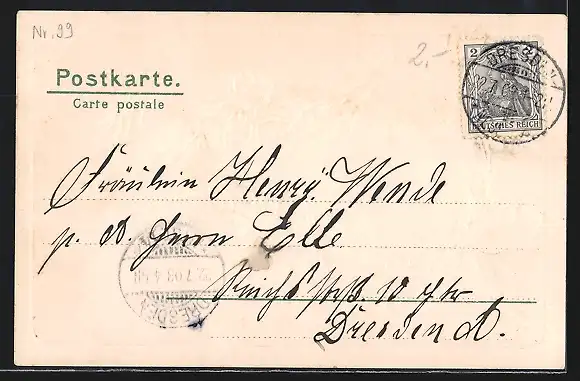 Nr. 99
2,-
Postkarte.
Carte postale
2
DRESDEN
DEUTSCHES REICH
Fräulein Henny Wende
p. A. Herrn Elle
Reichsstr. 10
Dresden A.
22.7.03. 4-5N
DRESDEN